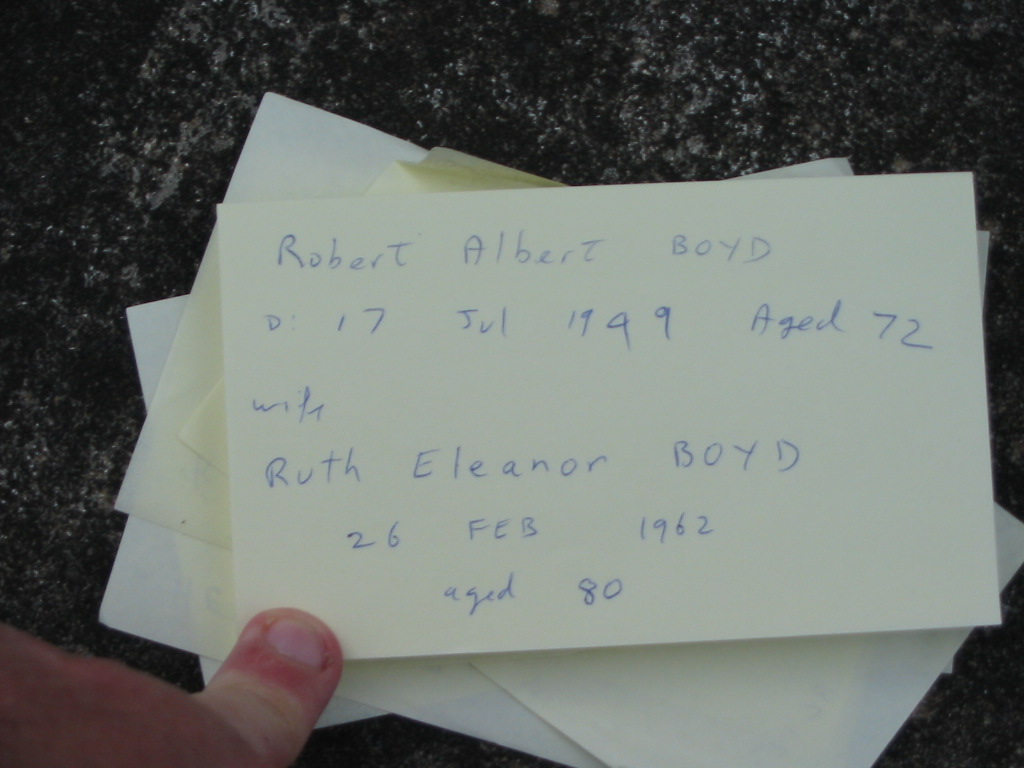 Robert Albert BOYD
D: 17 Jul 1949 Aged 72
wife
Ruth Eleanor BOYD
26 FEB 1962
aged 80